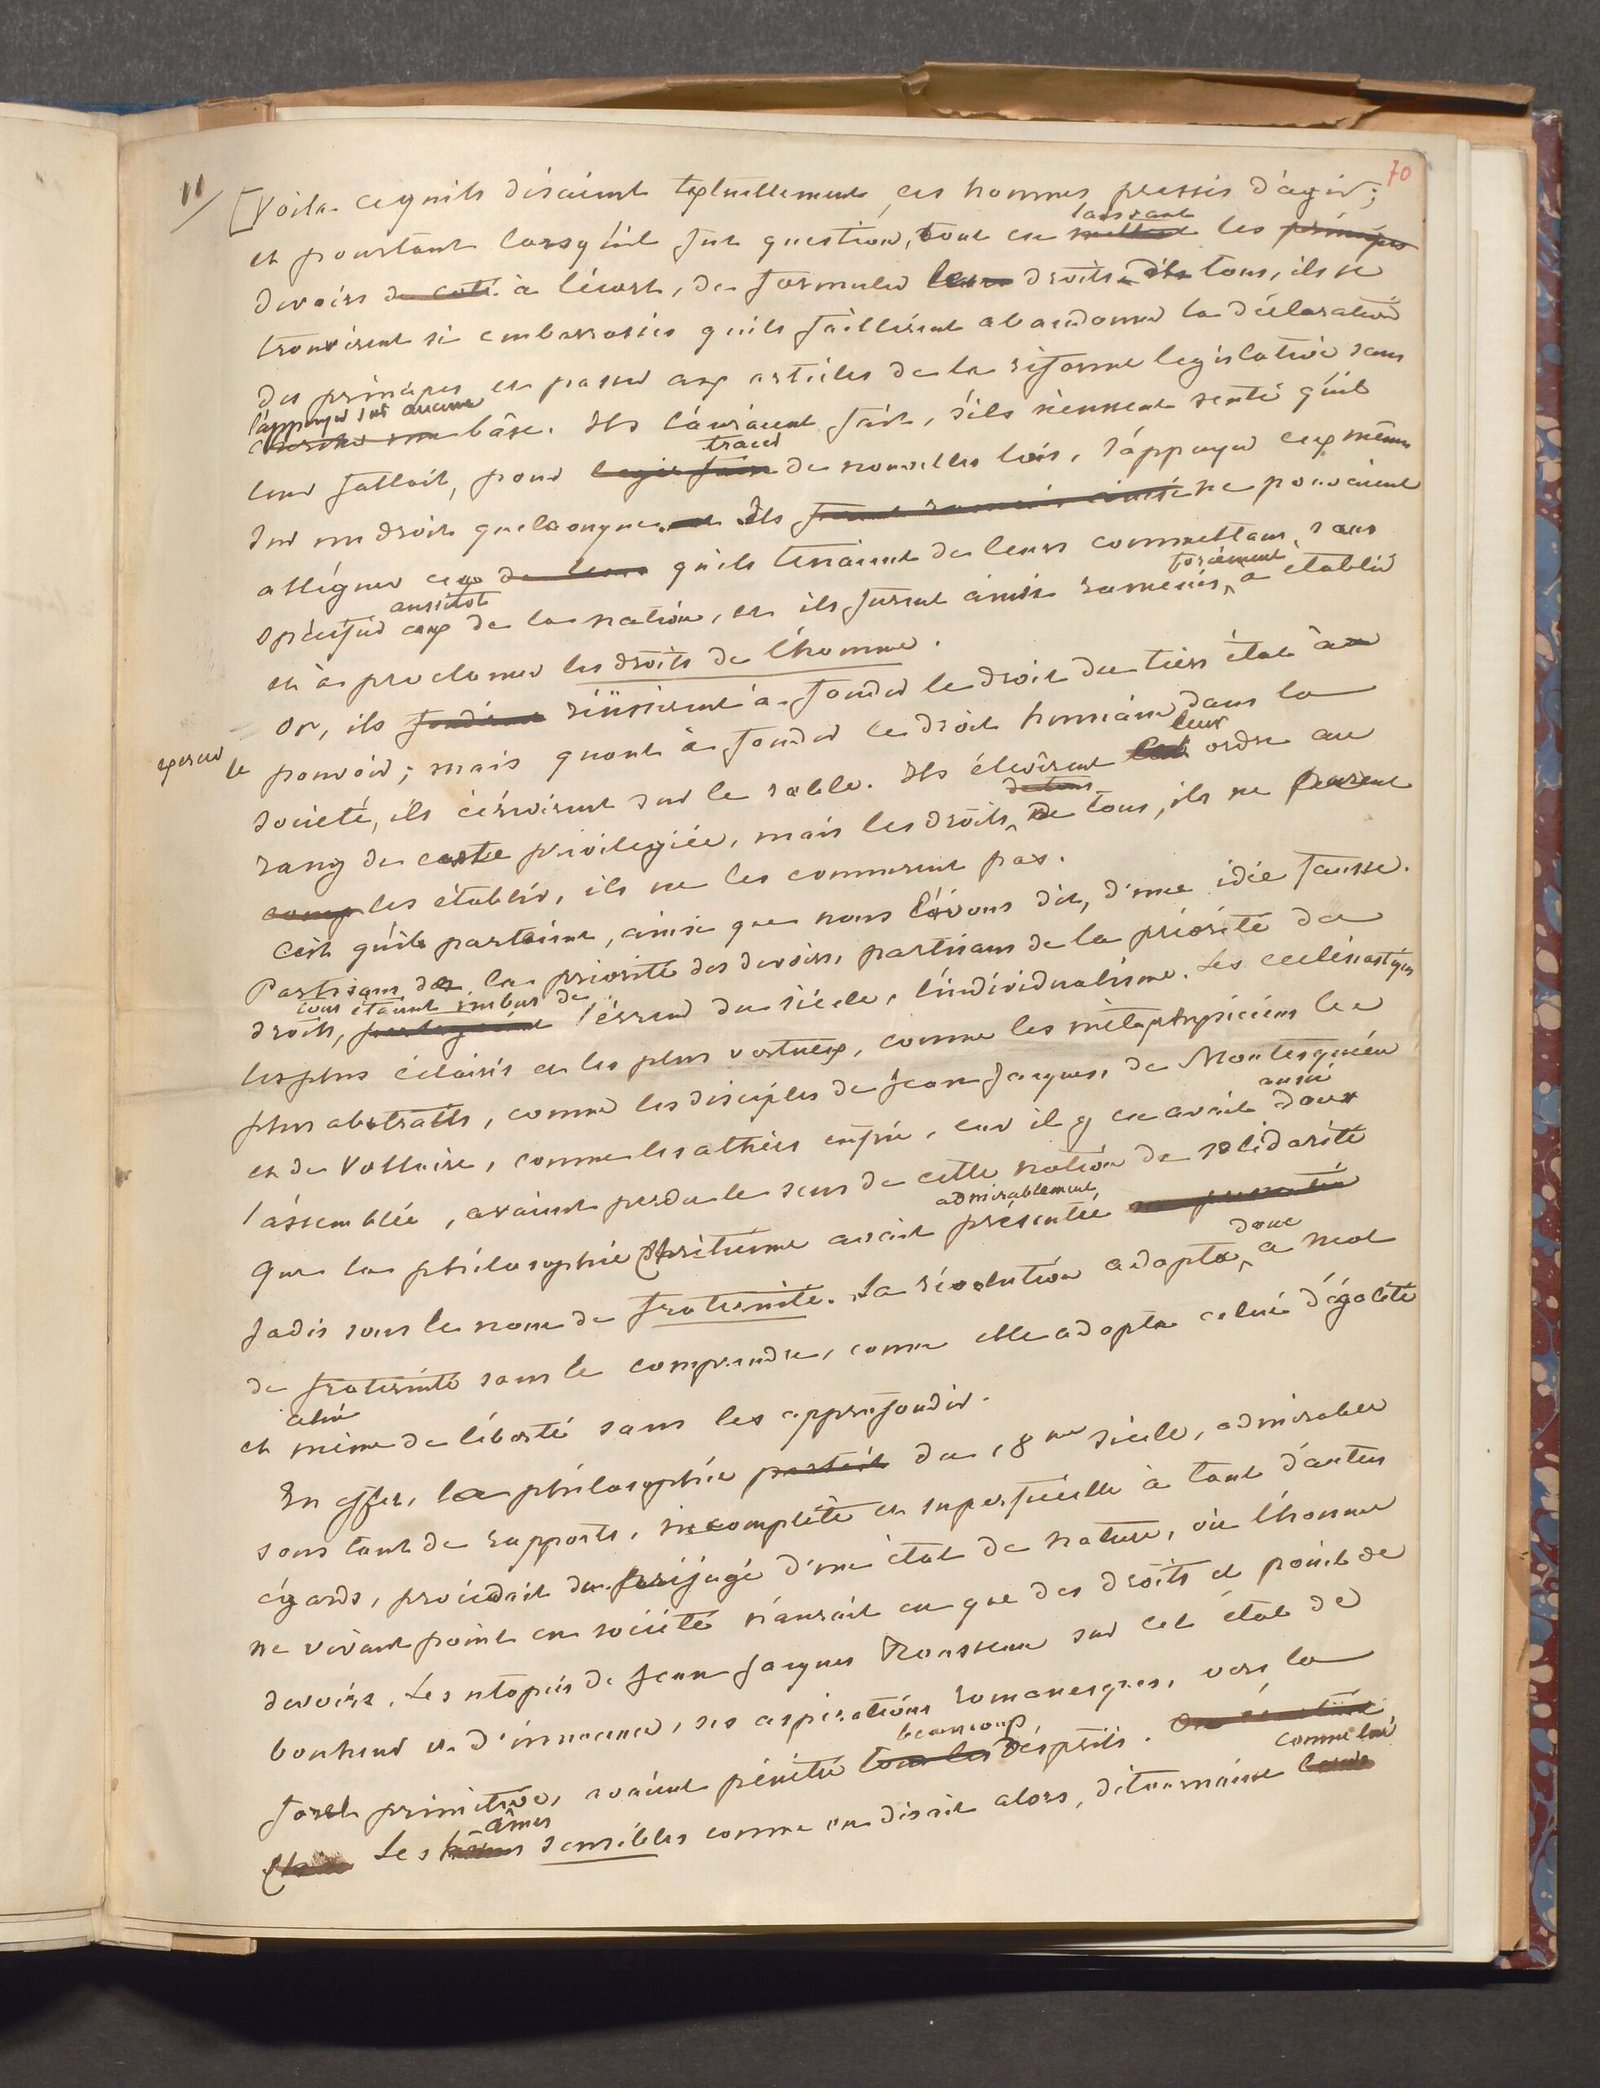 11/
70
[Voila ce qu'ils disaient textuellement, ces hommes pressés d'agir;
et pourtant lorsqu'il fut question, tout en laissant les
devoirs à l'écart, de formuler droits tous, ils se
trouvèrent si embarrassés qu'ils faillirent abandonner la déclaration
des principes et passer aux articles de la réforme législative sans
l'appuyer sur aucune bâse. Ils l'auraient fait, s'ils n'eussent senti qu'il
leur fallait, pour tracer de nouvelles lois, s'appuyer eux mêmes
sur un droit quelconque. Ils ne pouvaient
alléguer ceux qu'ils tenaient de leurs commettans, sans
spécifier aussitôt ceux de la nation, et ils furent ainsi ramenés forcément à établir
et à proclamer les droits de l'homme.
Or, ils réussirent à fonder le droit du tiers état à
exercer le pouvoir; mais quant à fonder le droit humain dans la
société, ils écrivirent sur le sable. Ils élevèrent leur ordre au
rang de caste privilegiée, mais les droits de tous, ils ne purent
les établir, ils ne les connurent pas.
C'est qu'ils partaient, ainsi que nous l'avons dit, d'une idée fausse.
Partisans de la priorité des devoirs, partisans de la priorité des
droits, tous étaient imbus de l'erreur du siècle, l'individualisme. Les ecclésiastiques
les plus éclairés et les plus vertueux, comme les métaphysiciens les
plus abstraits, comme les disciples de Jean Jacques, de Montesquieu
et de Voltaire, comme les athées enfin, car il y en avait aussi dans
l'assemblée, avaient perdu le sens de cette notion de solidarité
que la philosophie Chrétienne avait admirablement présentée
jadis sous le nom de fraternité. La révolution adopta donc le mot
de fraternité sans le comprendre, comme elle adopta celui d'égalité
et même celui de liberté sans les approfondir.
En effet, la philosophie du 18me siècle, admirable
sous tant de rapports, incomplète et superficielle à tant d'autres
égards, procédait du préjugé d'un état de nature, où l'homme
ne vivant point en société n'aurait eu que des droits et point de
devoirs. Les utopies de Jean Jacques Rousseau sur cet état de
bonheur et d'innocence, ses aspirations romanesques, vers la
forêt primitive, avaient pénétré beaucoup d'esprits.
Les âmes sensibles comme on disait alors, détournaient comme lui